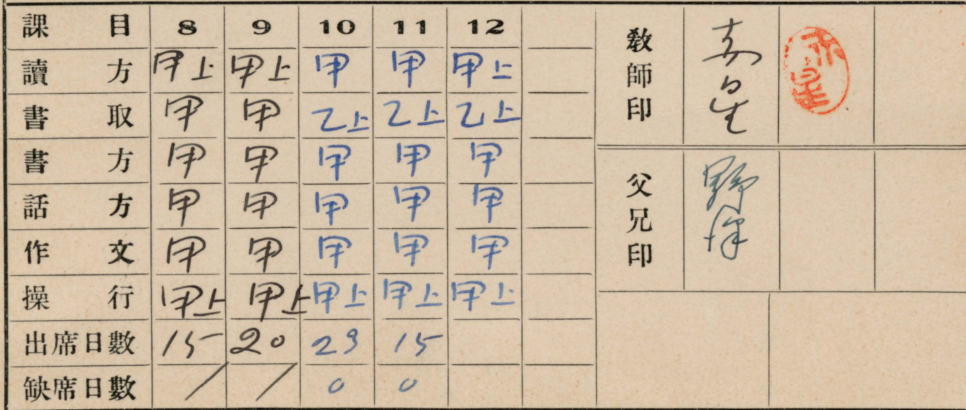 課目 8 9 10 11 12
讀方 甲上 甲上 甲 甲 甲上
書取 甲 甲 乙上 乙上 乙上
書方 甲 甲 甲 甲 甲
話方 甲 甲 甲 甲 甲
作文 甲 甲 甲 甲 甲
操行 甲上 甲上 甲上 甲上 甲上
出席日數 15 20 23 15
缺席日數 / / 0 0
教師印
父兄印